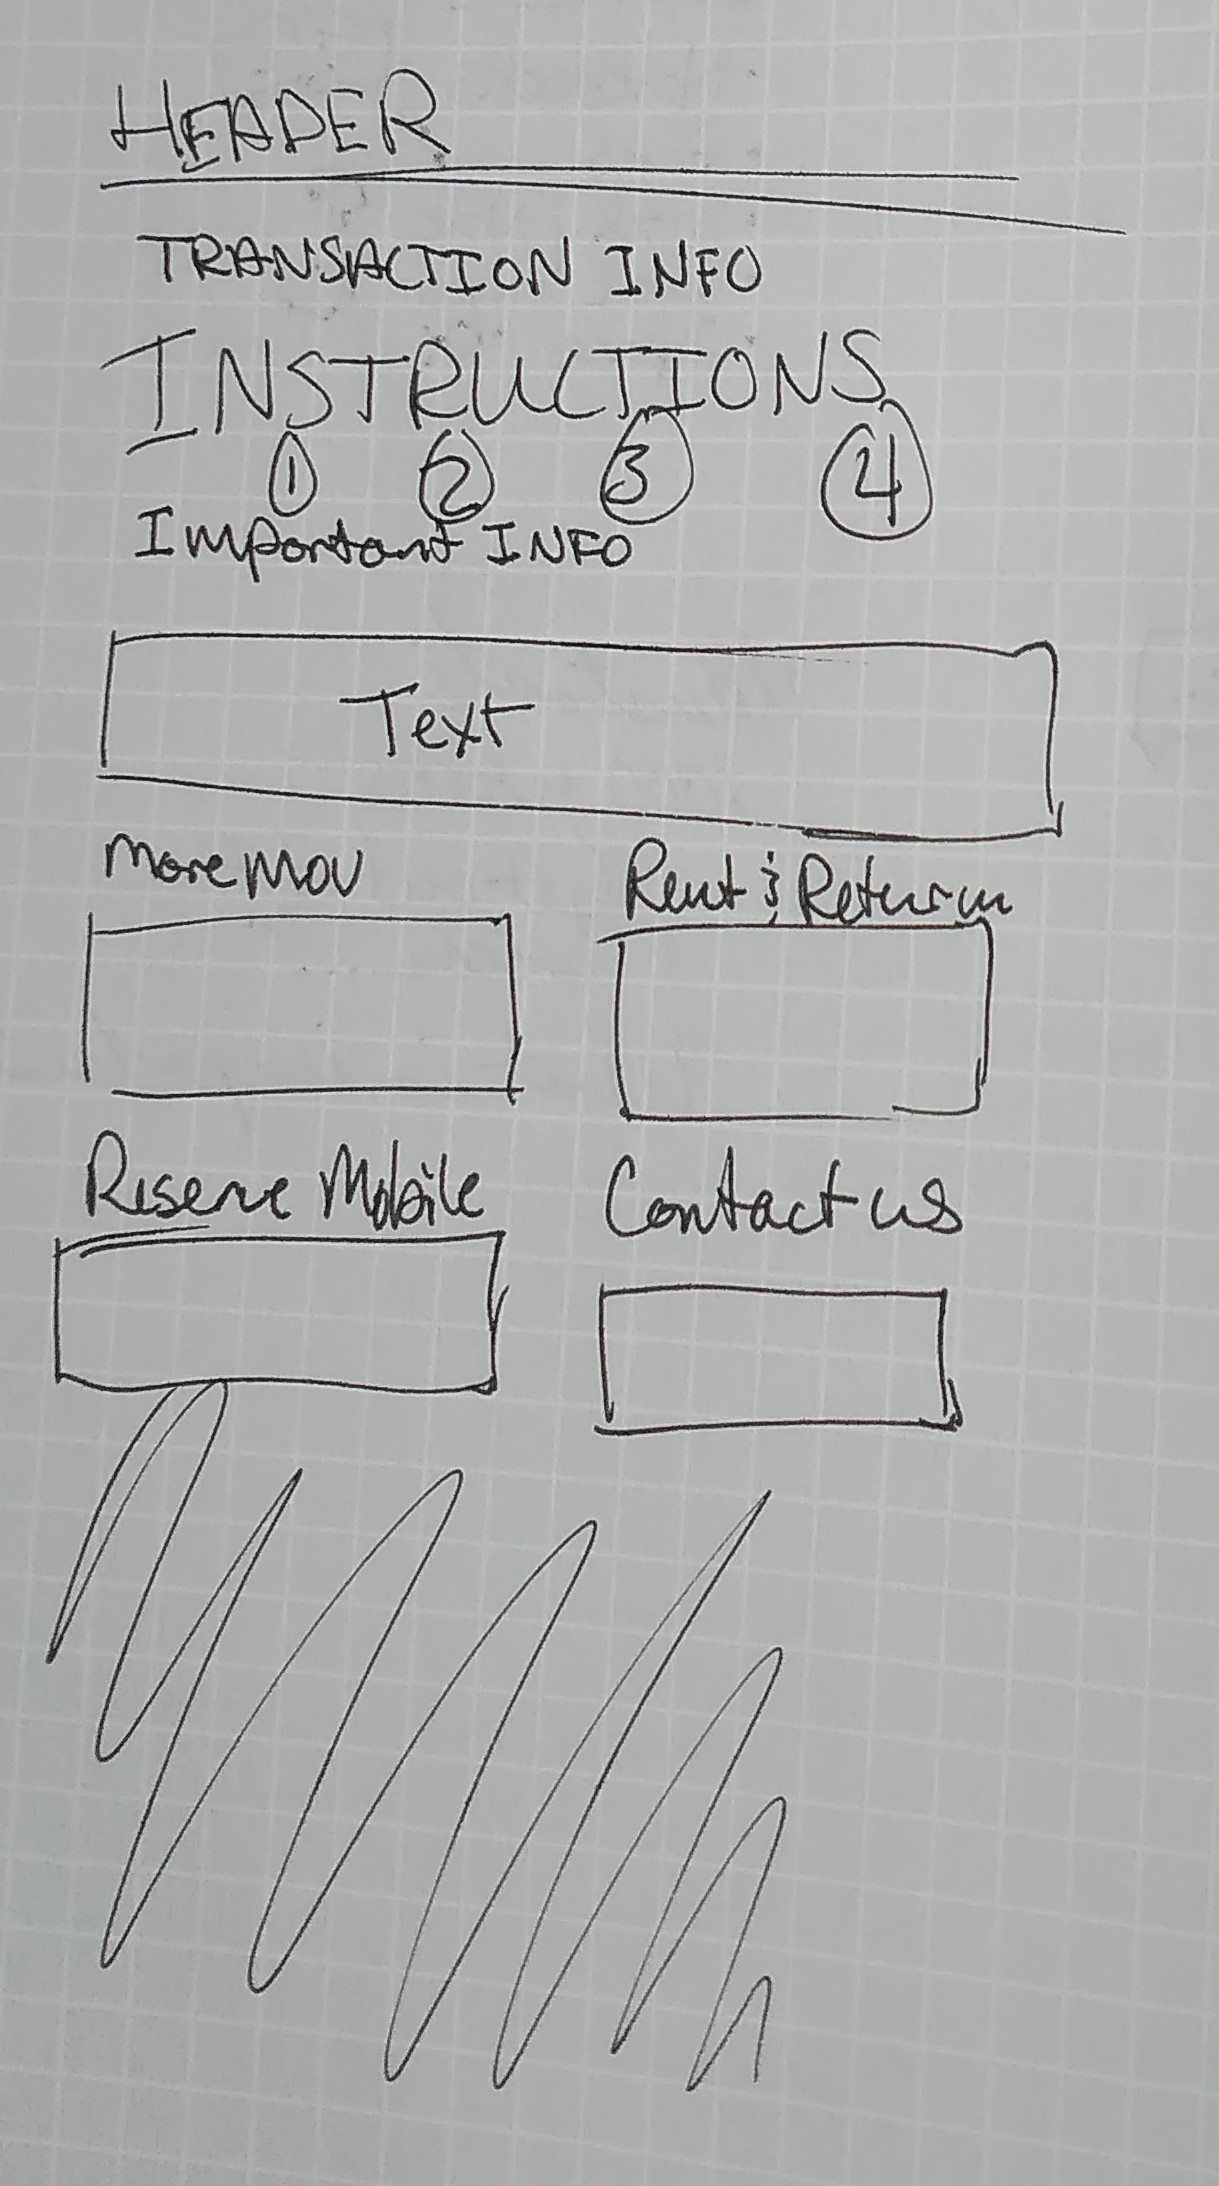 HEADER
TRANSACTION INFO
INSTRUCTIONS
1 2 3 4
Important INFO
Text
More MOV Rent & Return
Reserve Mobile Contact us